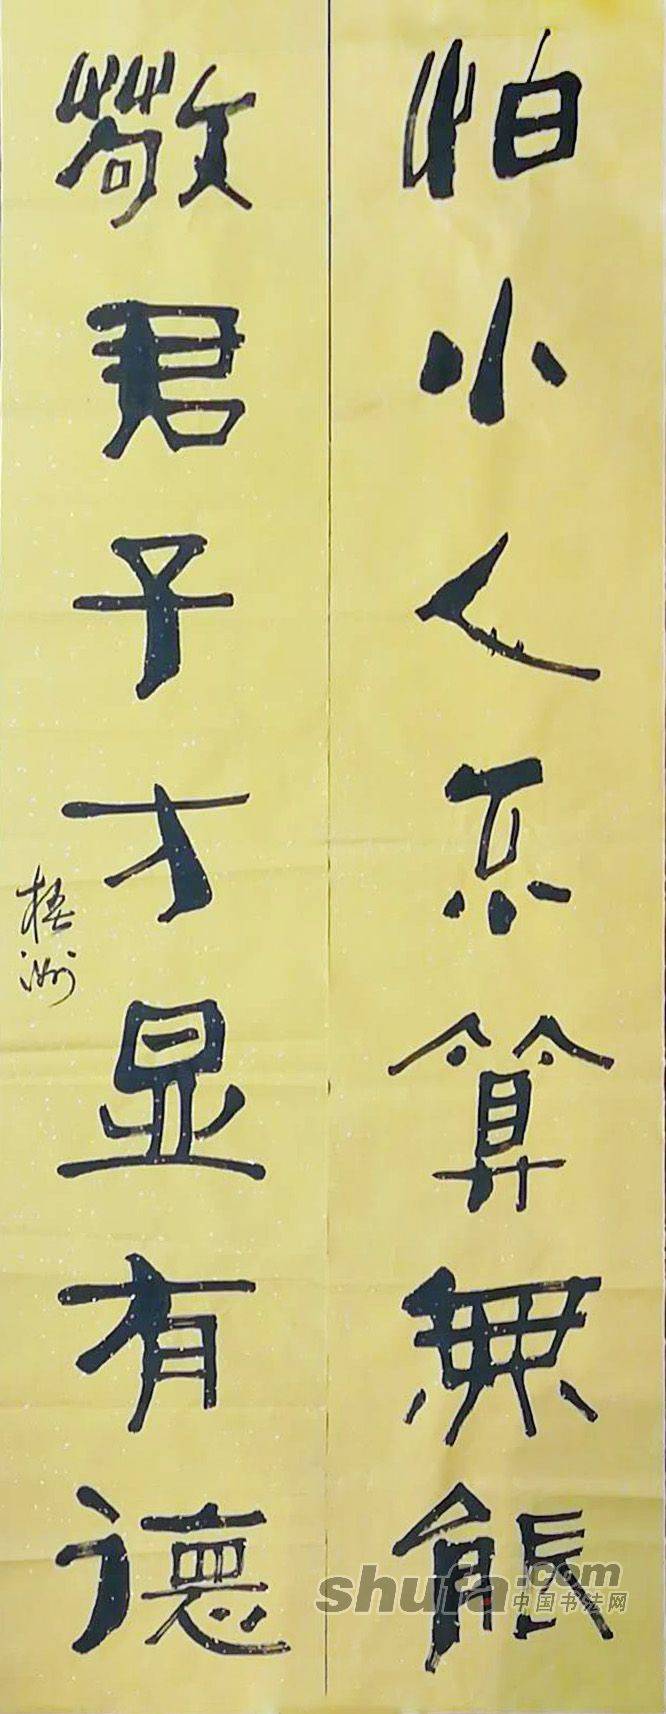 怕小人不算無能
敬君子方显有德
梧洲
shufa.com
中国书法网